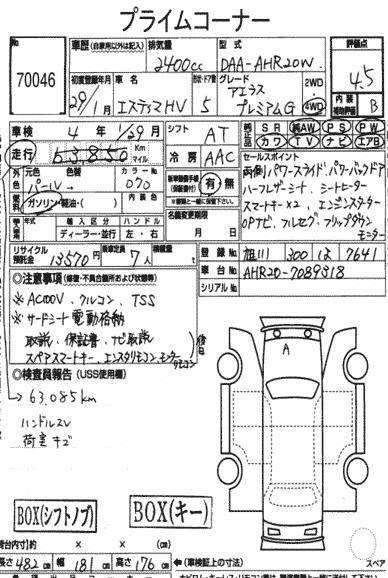 プライムコーナー
No.
70046
車歴 (自家用以外は記入) 排気量 2400cc 型式 DAA-AHR20W
評価点 4.5
内装補助評価 B
初度登録年月 29/1月 車名 エスティマHV ドア・型状 5 グレード アエラス プレミアムG 2WD 4WD
車検 4年 1/29月 シフト AT
SR 純AW PS PW
カワ TV ナビ エアB
走行 63,850 Km マイル 冷房 AAC
セールスポイント
両側パワースライド、パワーバックドア
ハーフレザーシート、シートヒーター
スマートキー×2、エンジンスターター
OPナビ、フルセグ、フリップダウン
モニター
外色 元色 パール 色替 カラーNo. 070 有・無
燃料 ガソリン・軽油・( ) 内装色
名義変更期限 月 日
輸入車 年式 輸入区分 ディーラー・並行 ハンドル 左・右
リサイクル預託金 13570円 乗車定員 7人 積載量 t
登録No. 旭川 300 は 7641
車台No. AHR20-7089318
シリアルNo.
◎注意事項 (修復・不具合箇所および状態等)
※AC100V、クルコン、TSS
※サードシート電動格納
取説、保証書、ナビ取説
スペアスマートキー、エンスタリモコン、モニターリモコン
◎検査員報告 (USS使用欄)
63,085km
ハンドルスレ
荷室キズ
A
BOX(シフトノブ)
BOX(キー)
荷台内寸(約) × × (cm)
長さ 482cm 幅 181cm 高さ 176cm ←(車検証上の寸法)
スペア